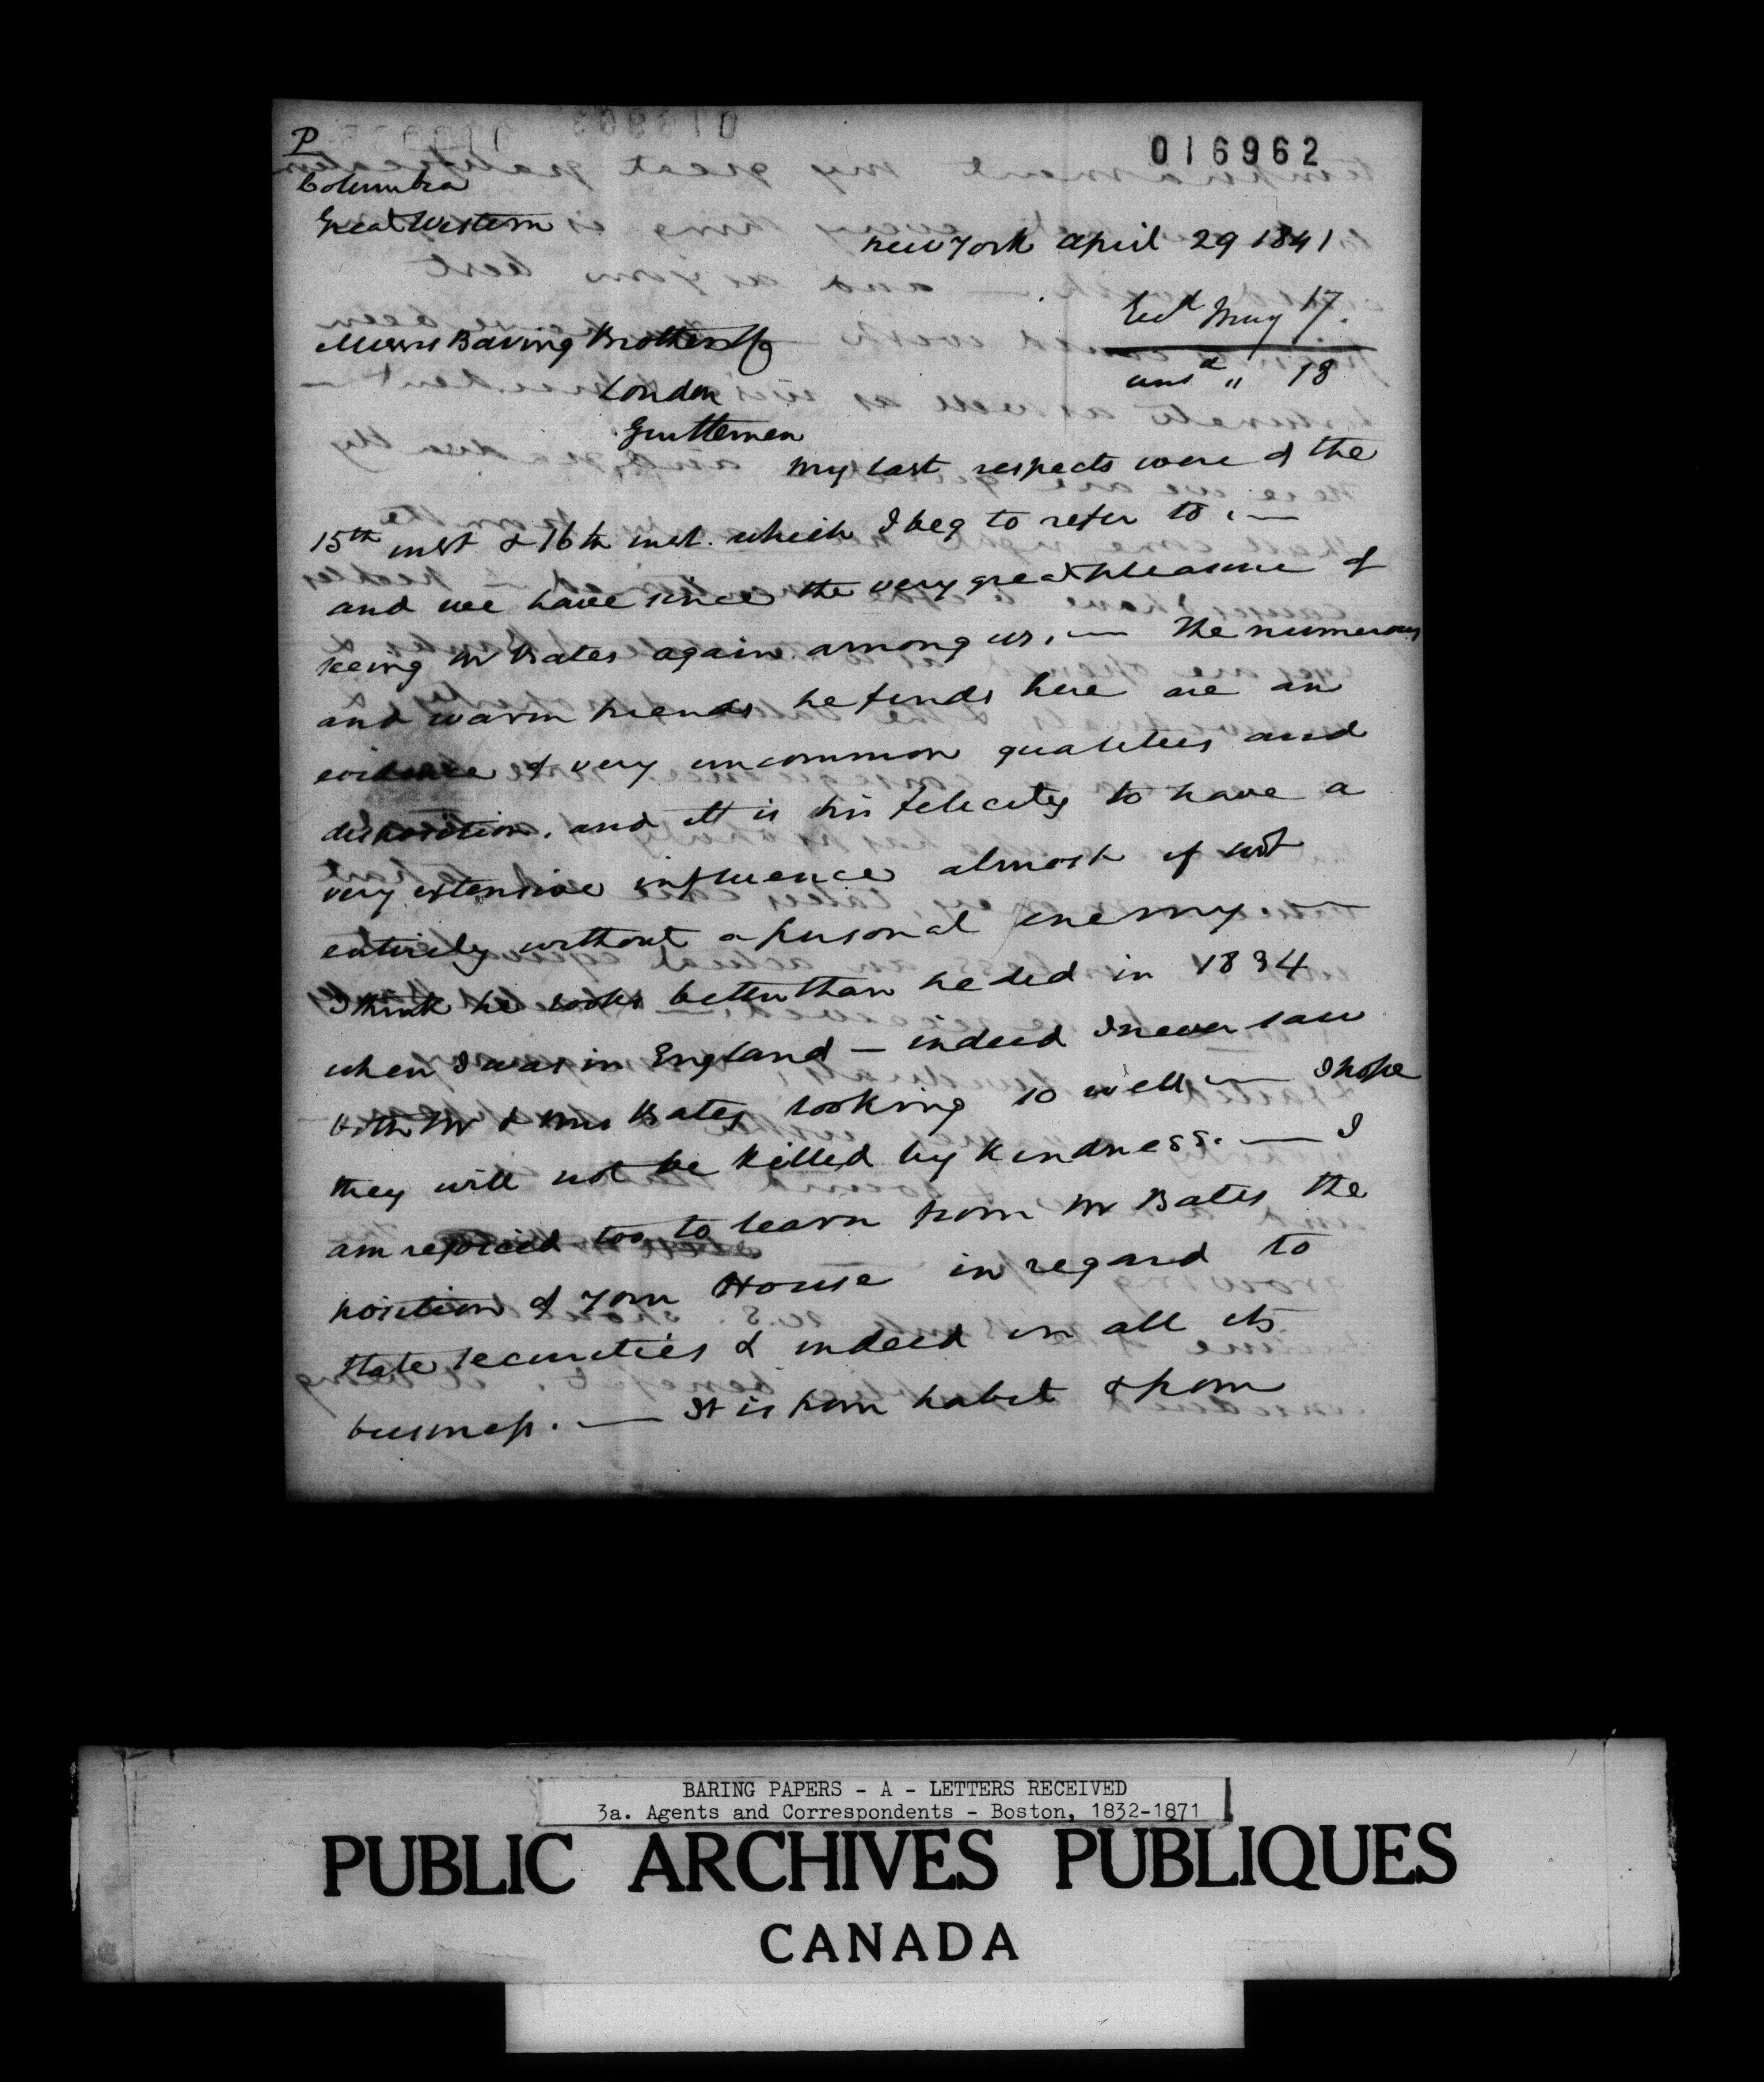 P
016962
Columbia
Great Western
New York April 29 1841
Recd May 17.
ansd " 18
Messrs Baring Brothers & Co
London
Gentlemen
My last respects were of the
15th inst & 16th inst. which I beg to refer to. —
and we have since the very great pleasure of
seeing Mr Bates again among us. — The numerous
and warm friends he finds here are an
evidence of very uncommon qualities and
disposition. and it is his felicity to have a
very extensive influence almost if not
entirely without a personal enemy. —
I think he looks better than he did in 1834
when I was in England — indeed I never saw
both Mr & Mrs Bates looking so well — I hope
they will not be killed by kindness. — I
am rejoiced too to learn from Mr Bates the
position of your House in regard to
State securities & indeed in all its
business. — It is from habit & from
BARING PAPERS - A - LETTERS RECEIVED
3a. Agents and Correspondents - Boston, 1832-1871
PUBLIC ARCHIVES PUBLIQUES
CANADA